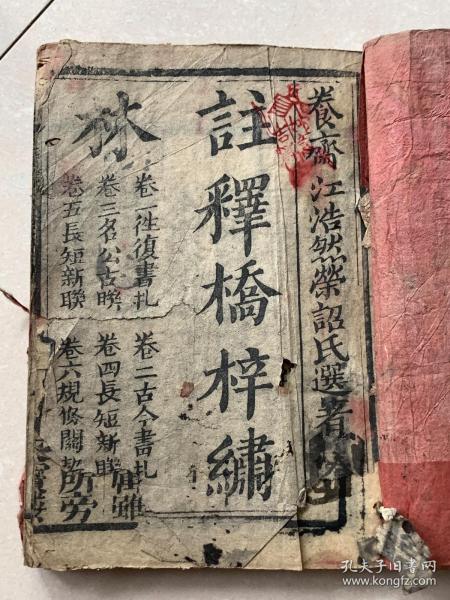 養齋江浩然榮詔氏選著
註釋橋梓繡
林
卷一徃復書札
卷二古今書札
卷三名公古聯
卷四長短新聯
卷五長短新聯
卷六規條關
孔夫子旧书网
www.kongfz.com